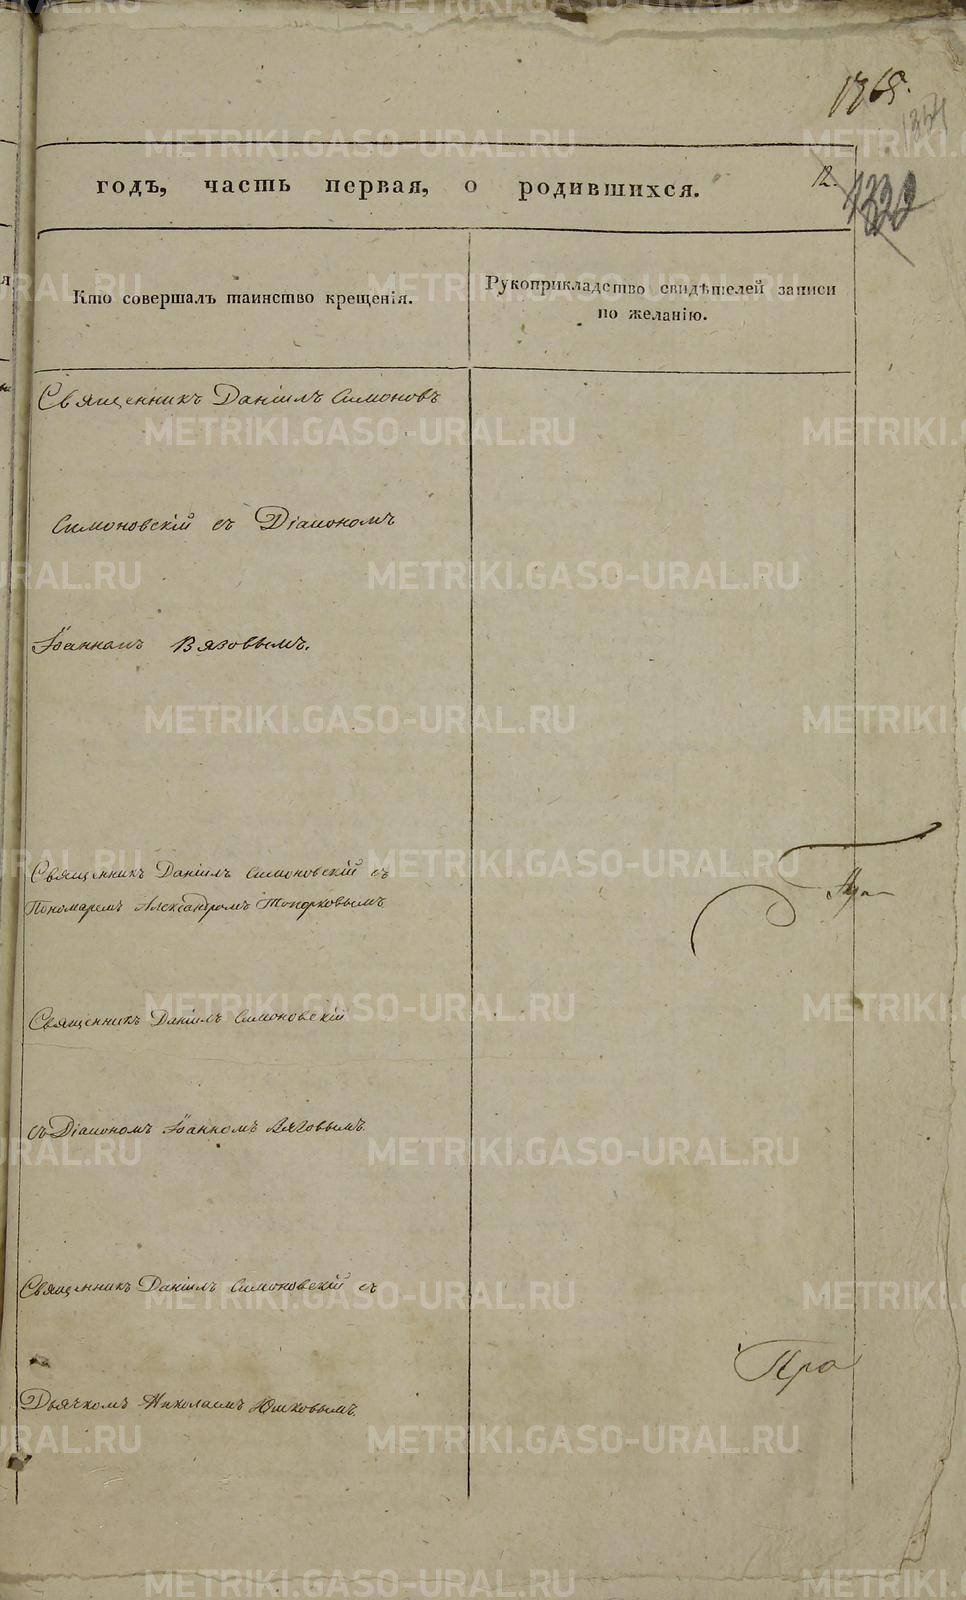 1365.
1354
годъ, часть первая, о родившихся.
12.
Кто совершалъ таинство крещенія.
Рукоприкладство свидѣтелей записи
по желанію.
Священникъ Даніилъ Симоновъ
Симоновскій съ Діакономъ
Іоанномъ Вяговымъ.
Священникъ Даніилъ Симоновскій съ
Пономаремъ Александромъ Топорковымъ
Священникъ Даніилъ Симоновскій
съ Діакономъ Іоанномъ Вяговымъ
Священникъ Даніилъ Симоновскій съ
Про
Дьячкомъ Николаемъ Юшковымъ.
METRIKI.GASO-URAL.RU